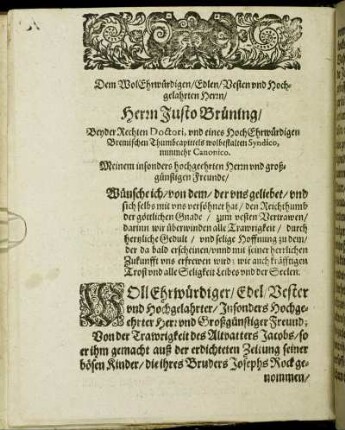 Dem WolEhrwürdigen/Edlen/Vesten vnd Hoch-
gelahrten Herrn/
Herrn Justo Brüning/
Beyder Rechten Doctori, vnd eines HochEhrwürdigen
Bremischen Thumbcapittels wolbestalten Syndico,
nunmehr Canonico.
Meinem insonders hochgeehrten Herrn vnd groß-
günstigen Freunde/
Wünsche ich/von dem/der vns geliebet/vnd
sich selbs mit vns versöhnet hat/den Reichthumb
der göttlichen Gnade/zum vesten Vertrawen/
darinn wir überwinden alle Trawrigkeit/durch
hertzliche Gedult/vnd selige Hoffnung zu dem/
der da bald erscheinen/vnnd mit seiner herrlichen
Zukunfft vns erfrewen wird: wie auch kräfftigen
Trost vnd alle Seligkeit Leibes vnd der Seelen.
WOllEhrwürdiger/Edel/Vester
vnd Hochgelahrter/Insonders Hochge-
ehrter Herr vnd Großgünstiger Freund;
Von der Trawrigkeit des Altvatters Jacobs/so
er ihm gemacht auß der erdichteten Zeitung seiner
bösen Kinder/die ihres Bruders Josephs Rock ge-
nommen/